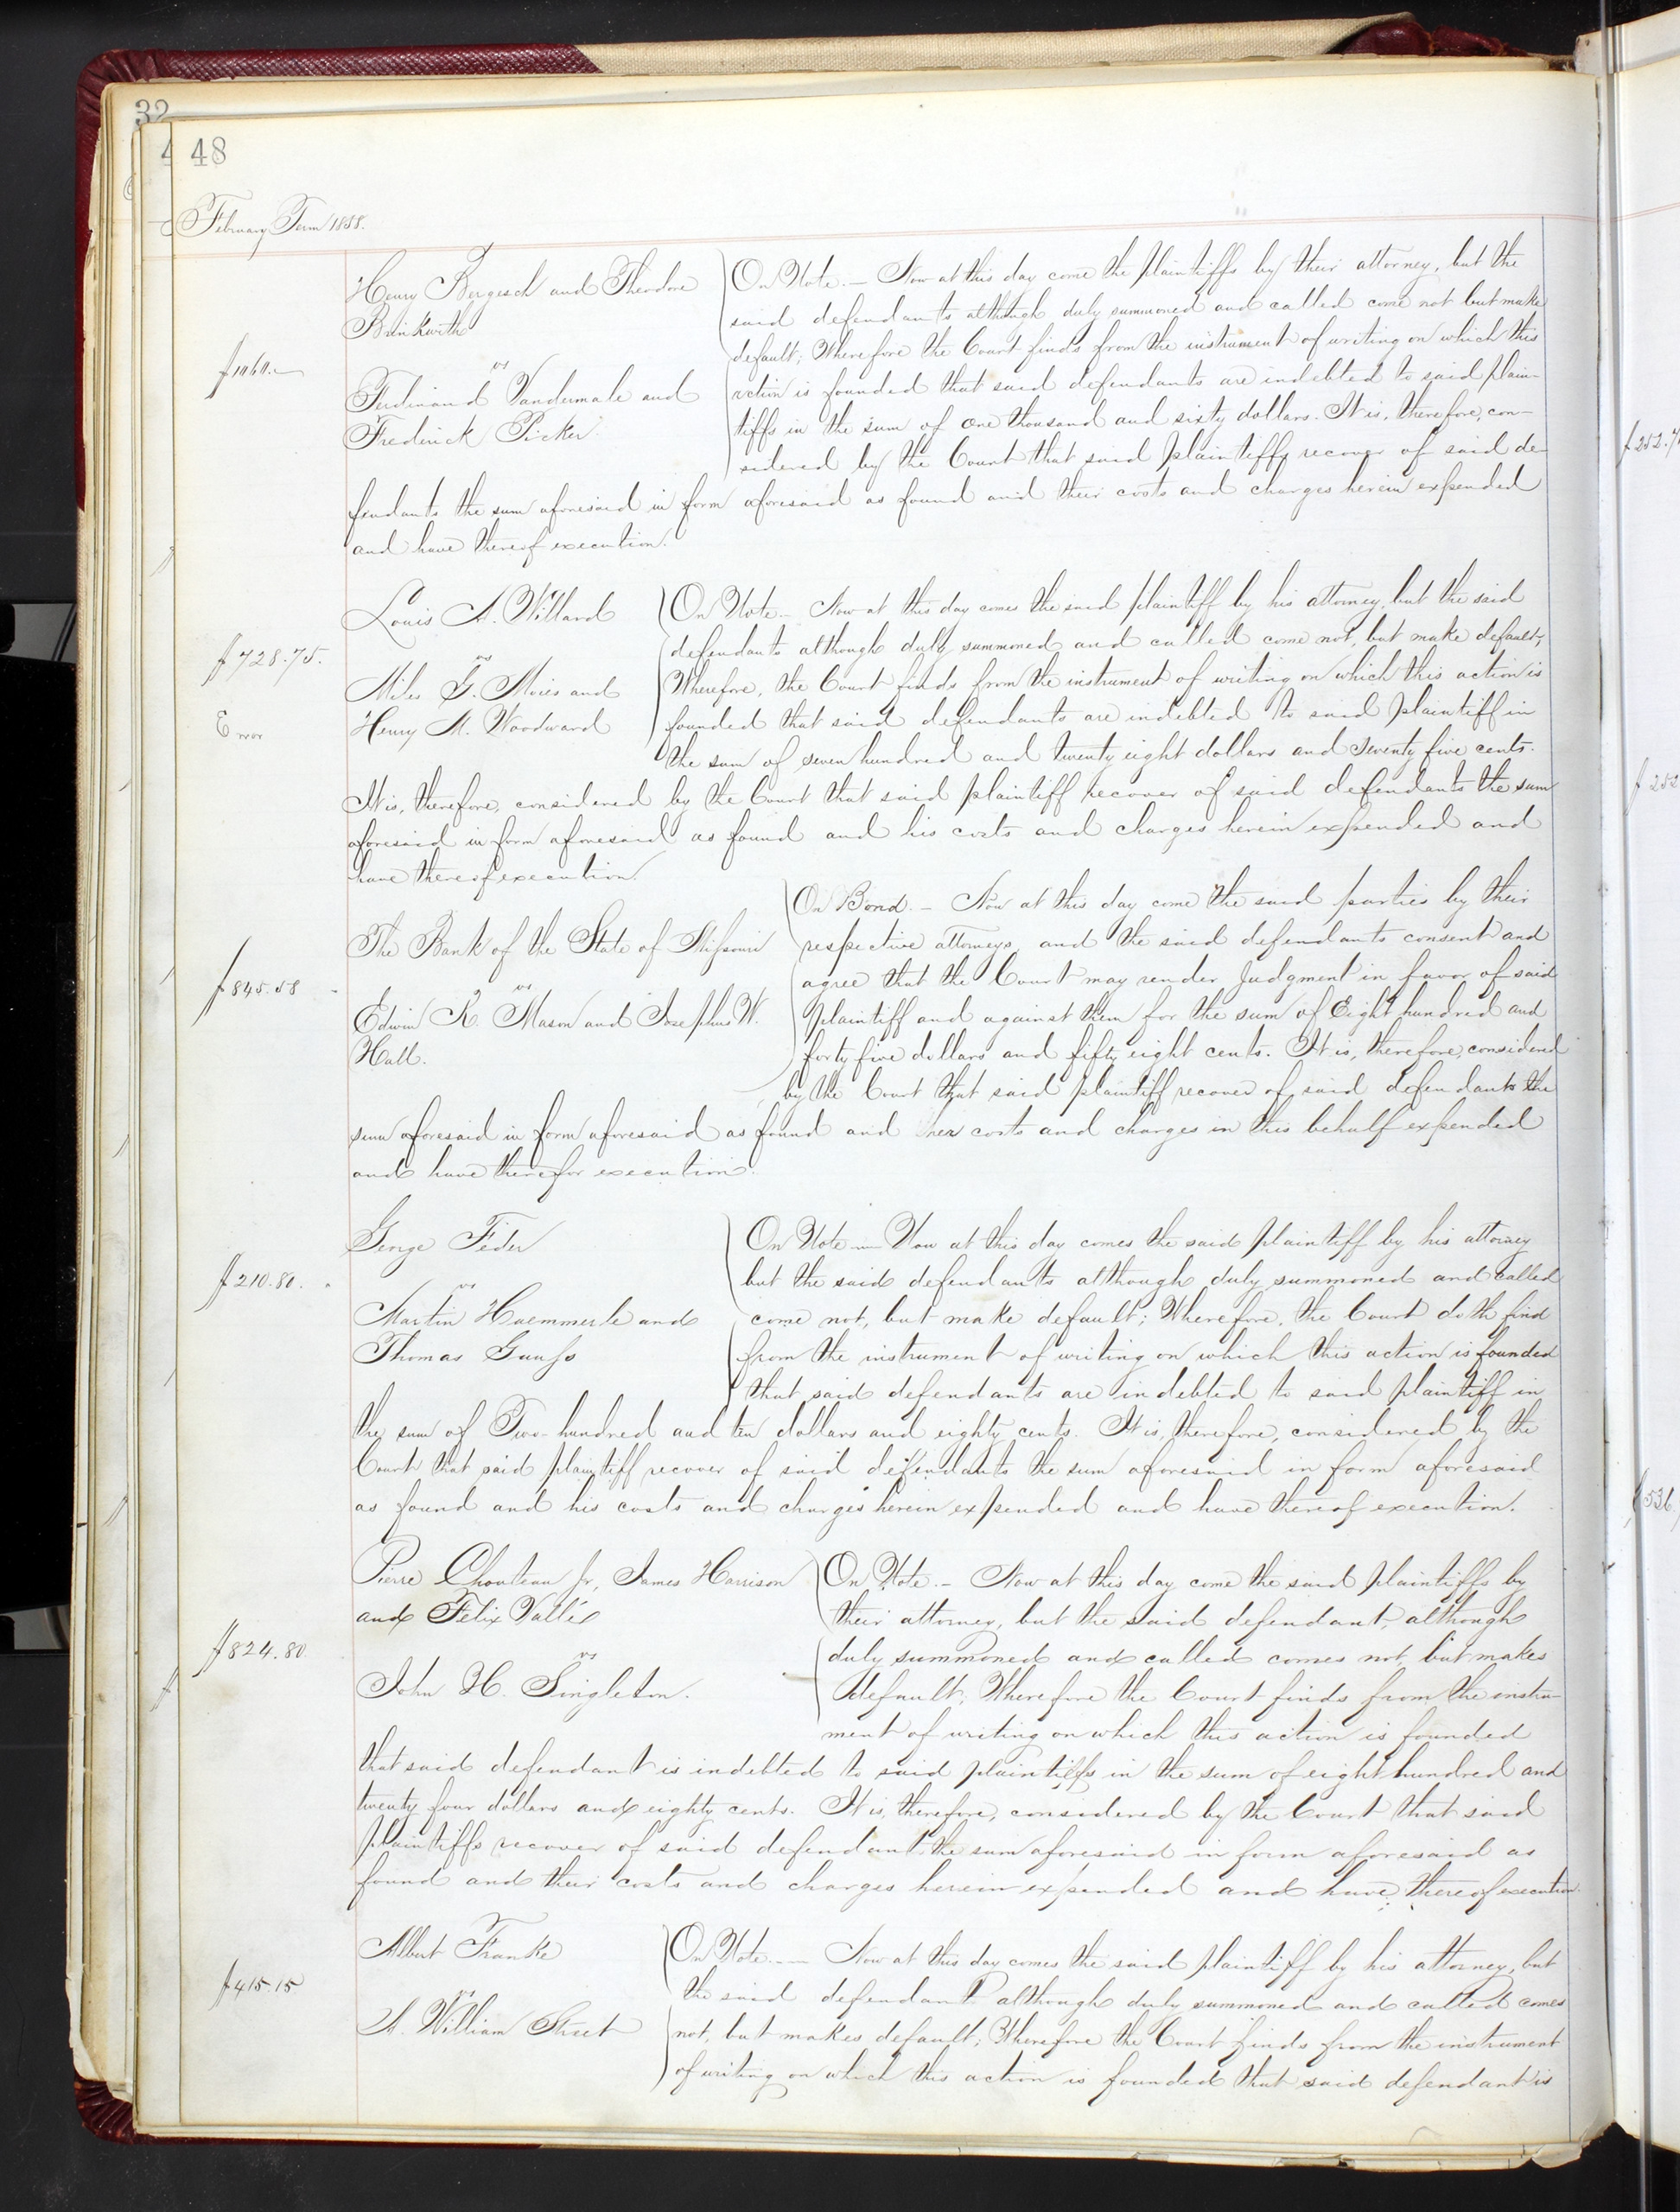 32
4 48
February Term 1858.
Henry Bergesch and Theodore
Brinkwirth
vs
Ferdinand Vandermale and
Frederick Picker.
$1060.—
On Note. — Now at this day come the plaintiffs by their attorney, but the
said defendants although duly summoned and called come not but make
default; Wherefore the Court finds from the instrument of writing on which this
action is founded that said defendants are indebted to said plain-
tiffs in the sum of one thousand and sixty dollars. It is, therefore, con-
sidered by the Court that said plaintiffs recover of said de-
fendants the sum aforesaid in form aforesaid as found and their costs and charges herein expended
and have thereof execution.
Louis A. Willard
vs
Miles G. Moies and
Henry M. Woodward
$728.75.
Error
On Note — Now at this day comes the said plaintiff by his attorney, but the said
defendants although duly summoned and called come not, but make default;
Wherefore, the Court finds from the instrument of writing on which this action is
founded that said defendants are indebted to said plaintiff in
the sum of seven hundred and twenty eight dollars and seventy five cents.
It is, therefore, considered by the Court that said plaintiff recover of said defendants the sum
aforesaid in form aforesaid as found and his costs and charges herein expended and
have thereof execution.
The Bank of the State of Missouri
vs
Edwin R. Mason and Josephus W.
Hall.
$845.58
On Bond. — Now at this day come the said parties by their
respective attorneys, and the said defendants consent and
agree that the Court may render Judgment in favor of said
plaintiff and against them for the sum of Eight hundred and
forty five dollars and fifty eight cents. It is, therefore, considered
by the Court that said plaintiff recover of said defendants the
sum aforesaid in form aforesaid as found and her costs and charges in this behalf expended
and have therefor execution.
George Feder
vs
Martin Haemmerle and
Thomas Gauss
$210.80.
On Note — Now at this day comes the said plaintiff by his attorney
but the said defendants although duly summoned and called
come not, but make default; Wherefore, the Court doth find
from the instrument of writing on which this action is founded
that said defendants are indebted to said plaintiff in
the sum of Two hundred and ten dollars and eighty cents. It is, therefore, considered by the
Court that said plaintiff recover of said defendants the sum aforesaid in form aforesaid
as found and his costs and charges herein expended and have thereof execution.
Pierre Chouteau Jr, James Harrison
and Felix Vallé
vs
John H. Singleton.
$824.80
On Note. — Now at this day come the said plaintiffs by
their attorney, but the said defendant, although
duly summoned and called comes not, but makes
default; Wherefore the Court finds from the instru-
ment of writing on which this action is founded
that said defendant is indebted to said plaintiffs in the sum of eight hundred and
twenty four dollars and eighty cents. It is, therefore, considered by the Court that said
plaintiffs recover of said defendant the sum aforesaid in form aforesaid as
found and their costs and charges herein expended and have thereof execution.
Albert Franke
vs
A. William Street
$415.15
On Note. — Now at this day comes the said plaintiff by his attorney, but
the said defendant although duly summoned and called comes
not, but makes default; Wherefore the Court finds from the instrument
of writing on which this action is founded that said defendant is